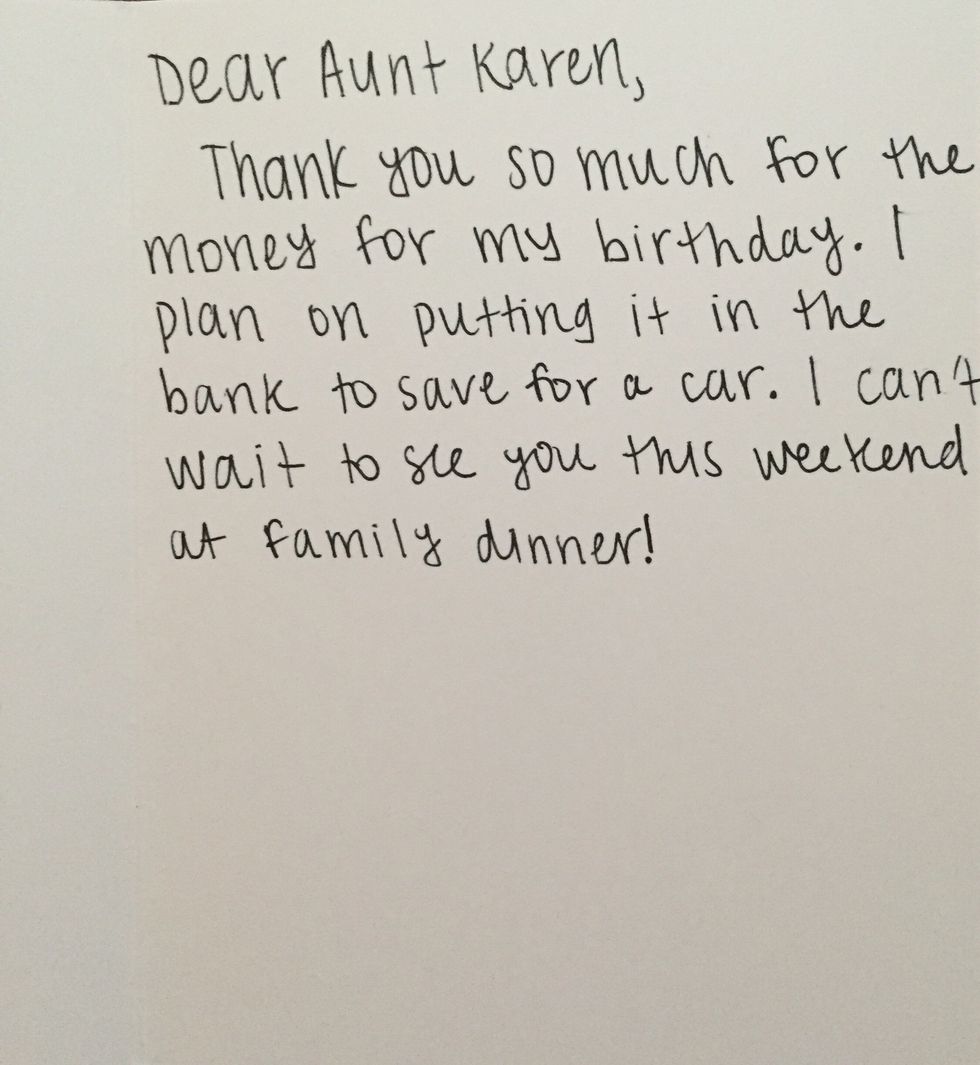 Dear Aunt Karen,
Thank you so much for the
money for my birthday. I
plan on putting it in the
bank to save for a car. I can't
wait to see you this weekend
at family dinner!